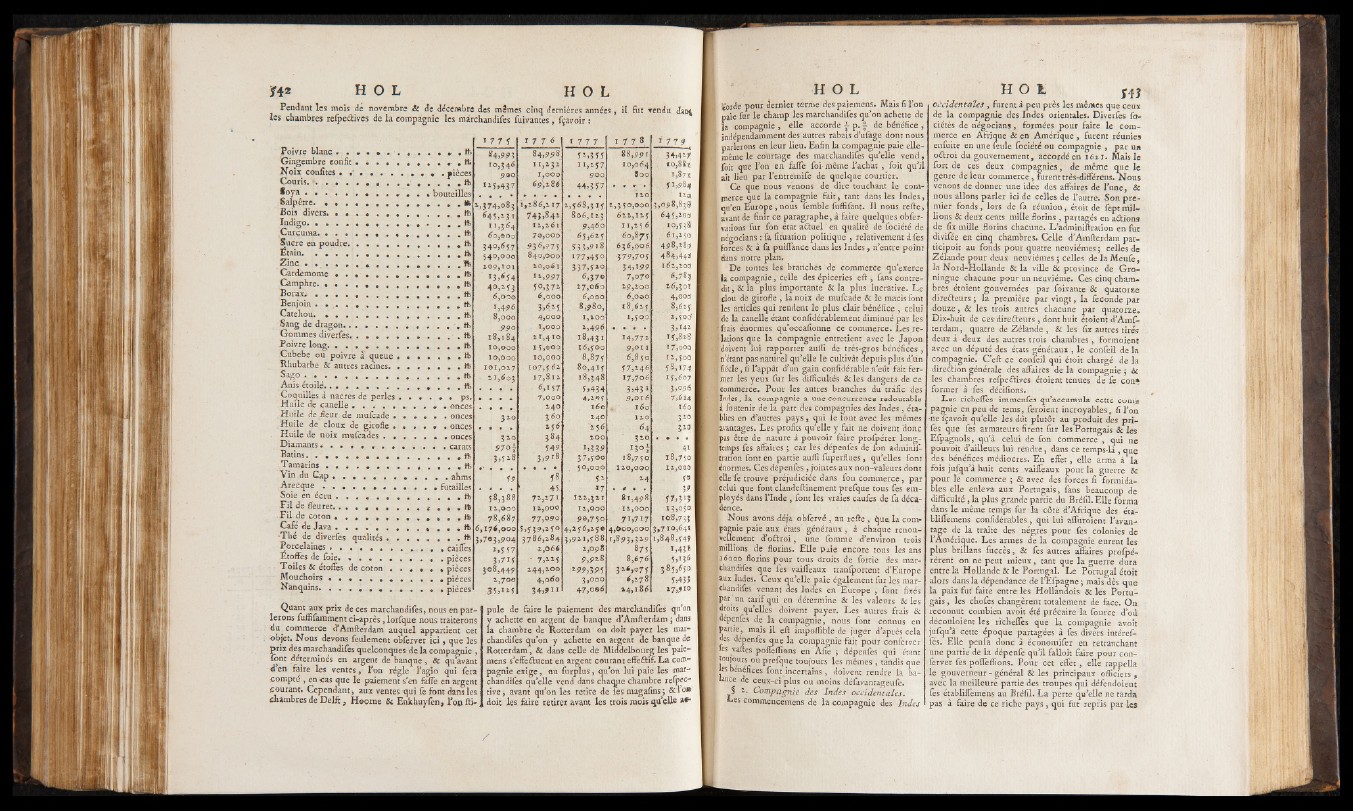 542 H O L H O L
Pendant les mois de novembre & de décembre des mêmes cinq dernières années, il fut vendu dans
les chambres respectives de la compagnie les marchandises suivantes, sçavoir :
1775 1776 1777 1778 1779
Poivre blanc . . . ℔ 84,993 84,998 52,355 88,991 34,427
Gingembre confit . . . ℔ 10,346 11,232 11,257 10,064 10,882
Noix confites . . . pièces 900 1,000 900 800
Couris. . . . ℔ 125,437 69,286 44,357 . . . . 51,984
Soya . . . bouteilles . . . . 120 120
Salpêtre. . . . ℔ 2,374,083 1,286,217 2,568,315 2,350,000 3,098,838
Bois divers. . . . ℔ 645,231 743,841 806,123 622,125 645,200
Indigo. . . . ℔ 11,364 12,261 9,260 11,256 10,538
Curcuma. . . . ℔ 60,600 70,000 65,625 60,875 61,250
Sucre en poudre. . . . ℔ 340,657 936,775 533,918 636,006 498,283
Étain. . . . ℔ 540,000 840,000 177,450 379,705 484,442
Zinc . . . ℔ 209,101 20,061 337,520 34,199 162,200
Cardemome . . . ℔ 13,654 12,997 6,370 7,070 6,783
Camphre. . . . ℔ 40,253 50,372 27,060 29,200 26,301
Borax. . . . ℔ 6,000 6,000 6,000 6,000 4,000
Benjoin . . . ℔ 1,496 3,625 8,980 18,625 8,625
Catechou. . . . ℔ 8,000 4,000 1,200 1,500 1,500
Sang de dragon. . . . ℔ 990 1,000 2,496 . . . . 3,142
Gommes diverses. . . . ℔ 18,184 21,410 18,431 14,772 15,828
Poivre long. . . . ℔ 10,000 15,000 16,500 9,011 17,000
Cubebe ou poivre à queue . . . ℔ 10,000 10,000 8,875 6,850 12,500
Rhubarbe & autres racines. . . . ℔ 101,027 107,562 80,415 57,246 58,174
Sago . . . ℔ 21,603 17,812 18,348 17,706 15,607
Anis étoilé. . . . ℔ 6,157 5,434 3,431 3,096
Coquilles à nacres de perles . . . ps. . . . . 7,000 4,295 9,016 7,624
Huile de canelle . . . onces . . . . 240 160 160 160
Huile de fleur de muscade . . . onces 320 360 240 120 320
Huile de cloux de girofle . . . onces . . . . 256 256 64 320
Huile de noix muscades . . . onces 320 384 200 320 . . . .
Diamants . . . carats 970½ 549 1,339 130½ 41
Batins. . . . ℔ 3,528 3,918 37,500 18,750 18,750
Tamarins . . . ℔ . . . . . . . . 50,000 120,000 12,000
Vin du Cap . . . ahms 59 58 52 24 52
Arecque . . . futailles . . . . 45 27 . . . . 39
Soie en écru . . . ℔ 58,388 72,271 122,321 81,498 57,313
Fil de fleuret. . . . ℔ 12,000 12,000 12,000 12,000 13,050
Fil de coton . . . ℔ 78,687 77,090 90,750 71,717 108,733
Café de Java . . . ℔ 6,176,000 5,539,250 4,256,250 4,000,000 3,710,625
Thé de diverses qualités . . . ℔ 3,703,904 3786,284 3,921,588 1,893,329 1,848,549
Porcelaines . . . caisses 2,557 2,066 2,098 875 1,458
Étoffes de soie. . . . pièces 3,715 7,225 9,928 8,676 5,156
Toiles & étoffes de coton . . . pièces 308,449 244,200 299,395 326,075 385,650
Mouchoirs . . . pièces 2,700 4,060 3,000 6,278 5,433
Nanquins. . . . pièces 35,125 34,911 47,006 24,186 27,910
Quant aux prix de ces marchandises, nous en par-
lerons suffisamment ci-après, lorsque nous traiterons
du commerce d'Amsterdam auquel appartient cet
objet. Nous devons seulement observer ici, que les
prix des marchandises quelconques de la compagnie,
sont déterminés en argent de banque, & qu'avant
d'en faire les ventes, l'on régle l'agio qui sera
compté, en cas que le paiement s'en fasse en argent
courant. Cependant, aux ventes qui se font dans les
chambres de Delft, Hoorne & Enkhuysen, l'on sti-
pule de faire le paiement des marchandises qu'on
y achette en argent de banque d'Amsterdam ; dans
la chambre de Rotterdam on doit payer les mar-
chandises qu'on y achette en argent de banque de
Rotterdam, & dans celle de Middelbourg les paie-
mens s'effectuent en argent courant effectif. La com-
pagnie exige, au surplus, qu'on lui paie les mar-
chandises qu'elle vend dans chaque chambre respec-
tive, avant qu'on les retire de ses magasins ; & l'on
doit les faire retirer avant les trois mois qu'elle ac-
H O L H O L 543
corde pour dernier terme des paiemens. Mais si l'on
paie sur le champ les marchandises qu'on achette de
la compagnie, elle accorde p. % de bénéfice,
indépendamment des autres rabais d'usage dont nous
parlerons en leur lieu. Enfin la compagnie paie elle-
même le courtage des marchandises qu'elle vend,
soit que l'on en fasse soi-même l'achat, soit qu'il
ait lieu par l'entremise de quelque courtier.
Ce que nous venons de dire touchant le com-
merce que la compagnie fait, tant dans les Indes,
qu'en Europe, nous semble suffisant. Il nous reste,
avant de finir ce paragraphe, à faire quelques obser-
vations sur son état actuel en qualité de société de
négocians : sa situation politique, relativement à ses
forces & à sa puissance dans les Indes, n'entre point
dans notre plan.
De toutes les branches de commerce qu'exerce
la compagnie, celle des épiceries est, sans contre-
dit, & la plus importante & la plus lucrative. Le
clou de girofle, la noix de muscade & le macis sont
les articles qui rendent le plus clair bénéfice, celui
de la canelle étant considérablement diminué par les
frais énormes qu'occasionne ce commerce. Les re-
lations que la compagnie entretient avec le Japon
doivent lui rapporter aussi de très-gros bénéfices,
n'étant pas naturel qu'elle le cultivât depuis plus d'un
siécle, si l'appât d'un gain considérable n'eût fait fer-
mer les yeux sur les difficultés & les dangers de ce
commerce. Pour les autres branches du trafic des
Indes, la compagnie a une concurrence redoutable
à soutenir de la part des compagnies des Indes, éta-
blies en d'autres pays, qui le font avec les mêmes
avantages. Les profits qu'elle y fait ne doivent donc
pas être de nature à pouvoir faire prospérer long-
temps ses affaires ; car les dépenses de son adminis-
tration sont en partie aussi superflues, qu'elles sont
énormes. Ces dépenses, jointes aux non-valeurs dont
elle se trouve préjudiciée dans son commerce, par
celui que font clandestinement presque tous ses em-
ployés dans l'Inde, sont les vraies causes de sa déca-
dence.
Nous avons déja observé, au reste, que la com-
pagnie paie aux états généraux, à chaque renou-
vellement d'octroi, une somme d'environ trois
millions de florins. Elle paie encore tous les ans
16000 florins pour tous droits de sortie des mar-
chandises que ses vaisseaux transportent d'Europe
aux Indes. Ceux qu'elle paie également sur les mar-
chandises venant des Indes en Europe, sont fixés
par un tarif qui en détermine & les valeurs & les
droits qu'elles doivent payer. Les autres frais &
dépenses de la compagnie, nous sont connus en
partie, mais il est impossible de juger d'après cela
des dépenses que la compagnie fait pour conserver
ses vastes possessions en Asie ; dépenses qui étant
toujours ou presque toujours les mêmes, tandis que
les bénéfices sont incertains, doivent rendre la ba-
lance de ceux-ci plus ou moins désavantageuse.
§ 2. Compagnie des Indes occidentales.
Les commencemens de la compagnie des Indes
occidentales, furent à peu près les mêmes que ceux
de la compagnie des Indes orientales. Diverses so-
ciétés de négocians, formées pour faire le com-
merce en Afrique & en Amérique, furent réunies
ensuite en une seule société ou compagnie, par un
octroi du gouvernement, accordé en 1621. Mais le
sort de ces deux compagnies, de même que le
genre de leur commerce, furent très-différens. Nous
venons de donner une idée des affaires de l'une, &
nous allons parler ici de celles de l'autre. Son pre-
mier fonds, lors de sa réunion, étoit de sept mil-
lions & deux cents mille florins, partagés en actions
de six mille florins chacune. L'administration en fut
divisée en cinq chambres. Celle d'Amsterdam par-
ticipoit au fonds pour quatre neuviémes ; celles de
Zélande pour deux neuviémes ; celles de la Meuse,
la Nord-Hollande & la ville & province de Gro-
ningue chacune pour un neuviéme. Ces cinq cham-
bres étoient gouvernées par soixante & quatorze
directeurs ; la première par vingt, la seconde par
douze, & les trois autres chacune par quatorze.
Dix-huit de ces directeurs, dont huit étoient d'Ams-
terdam, quatre de Zélande, & les six autres tirés
deux à deux des autres trois chambres, formoient
avec un député des états généraux, le conseil de la
compagnie. C'est ce conseil qui étoit chargé de la
direction générale des affaires de la compagnie ; &
les chambres respectives étoient tenues de se con-
former à ses décisions.
Les richesses immenses qu'accumula cette com-
pagnie en peu de tems, seroient incroyables, si l'on
ne sçavoit qu'elle les dût plutôt au produit des pri-
ses que ses armateurs firent sur les Portugais & les
Espagnols, qu'à celui de son commerce, qui ne
pouvoit d'ailleurs lui rendre, dans ce temps-là, que
des bénéfices médiocres. En effet, elle arma à la
fois jusqu'à huit cents vaisseaux pour la guerre &
pour le commerce ; & avec des forces si formida-
bles elle enleva aux Portugais, sans beaucoup de
difficulté, la plus grande partie du Brésil. Elle forma
dans le même temps sur la côte d'Afrique des éta-
blissemens considérables, qui lui assuroient l'avan-
tage de la traite des nègres pour ses colonies de
l'Amérique. Les armes de la compagnie eurent les
plus brillans succès, & ses autres affaires prospé-
rèrent on ne peut mieux, tant que la guerre dura
entre la Hollande & le Portugal. Le Portugal étoit
alors dans la dépendance de l'Espagne ; mais dès que
la paix fut faite entre les Hollandois & les Portu-
gais, les choses changèrent totalement de face. On
reconnut combien avoit été précaire la source d'où
découloient les richesses que la compagnie avoit
jusqu'à cette époque partagées à ses divers intéres-
sés. Elle pensa donc à économiser en retranchant
une partie de la dépense qu'il falloit faire pour con-
server ses possessions. Pour cet effet, elle rappella
le gouverneur-général & les principaux officiers,
avec la meilleure partie des troupes qui défendoient
ses établissemens au Brésil. La perte qu'elle ne tarda
pas à faire de ce riche pays, qui fut repris par les